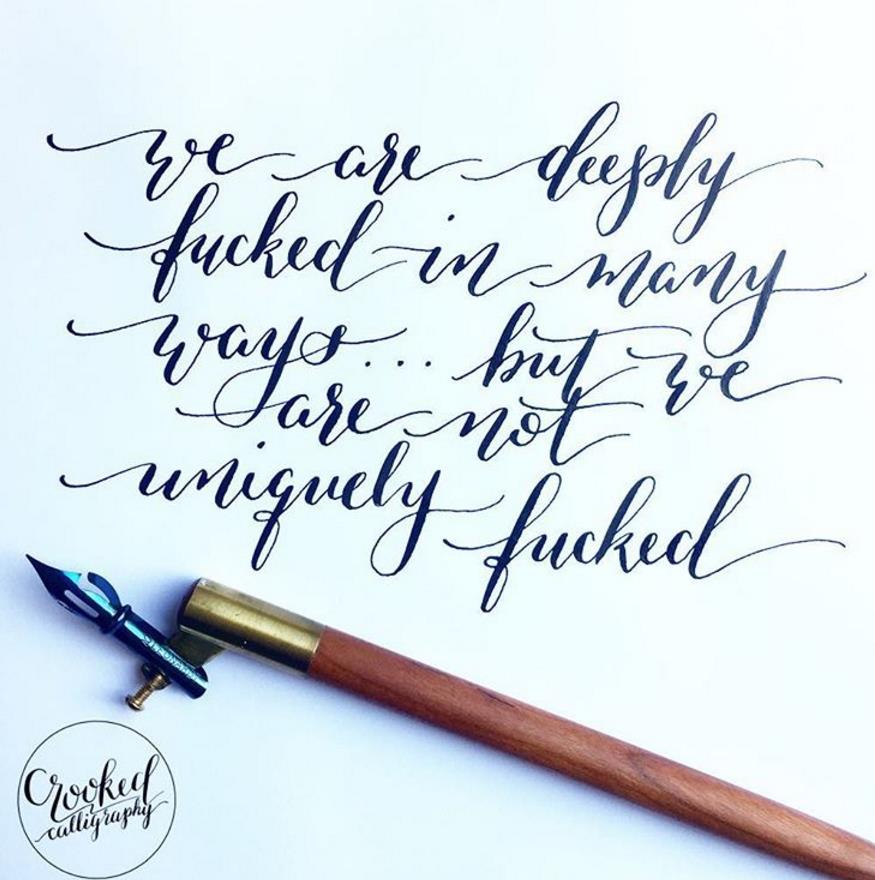 we are deeply
fucked in many
ways... but we
are not
uniquely fucked
LEONARDT
Crooked
calligraphy